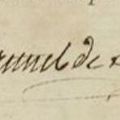 anuel de